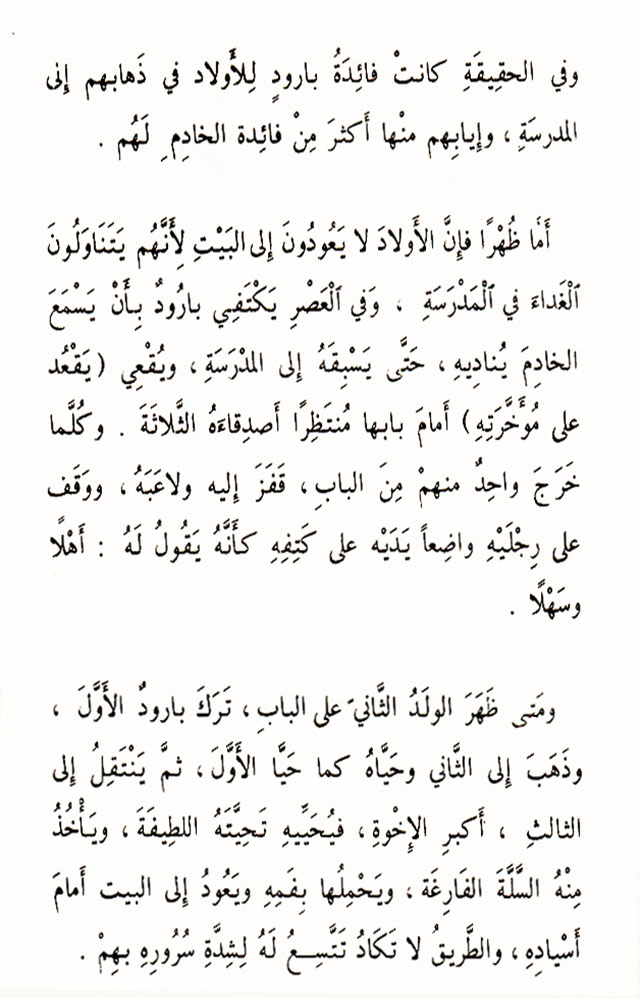 وفي الحقِيقَةِ كانتْ فائِدَةُ بارودٍ لِلأَولاد في ذَهابهم إلى
المدرسَةِ ، وإيابِهم منْها أَكثرَ مِنْ فائِدة الخادِمِ لَهُم .
أَمَا ظُهْرًا فإنَّ الأَولادَ لا يَعُودُونَ إلى البَيْتِ لِأَنَّهُم يَتَنَاوَلُونَ
ٱلْغَداءَ في ٱلْمَدْرَسَةِ ، وَفي ٱلْعَصْرِ يَكْتَفِي بارُودٌ بِأَنْ يَسْمَعَ
الخادِمَ يُنادِيهِ ، حَتَّى يَسْبِقَهُ إلى المدْرَسَةِ ، ويُقْعِي (يَقْعُد
على مُؤَخَّرَتِهِ) أَمامَ بابها مُنتَظِرًا أَصدِقاءَهُ الثَّلاثَةَ . وكُلَّما
خَرَجَ واحِدٌ منهمْ مِنَ البابِ ، قَفَزَ إليه ولاعَبَهُ ، ووَقَف
على رِجْلَيْهِ واضِعاً يَدَيْه على كَتِفِهِ كأَنَّهُ يَقُولُ لَهُ : أَهْلًا
وسَهْلًا .
ومَتى ظَهَرَ الولَدُ الثَّانيَ على البابِ ، تَرَكَ بارودٌ الأَوَّلَ ،
وذَهَبَ إلى الثَّاني وحَيَّاهُ كما حَيَّا الأَوَّلَ ، ثمَّ يَنْتَقِلُ إلى
الثالثِ ، أَكبرِ الإخْوةِ ، فيُحَيِّيهِ تَحِيَّتَهُ اللطِيفَةَ ، ويَأْخُذُ
مِنْهُ السَّلَّةَ الفَارِغَة ، ويَحْمِلُها بِفَمِهِ ويَعُودُ إلى البيت أَمامَ
أَسْيادِهِ ، والطَّريقُ لا تَكَادُ تَتَّسِعُ لَهُ لِشِدَّةِ سُرُورِهِ بهِمْ .